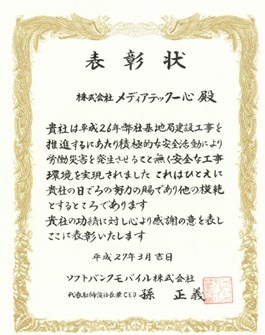 表彰状
株式会社 メディアテック一心 殿
貴社は平成26年弊社基地局建設工事を
推進するにあたり積極的な安全活動により
労働災害を発生させること無く安全な工事
環境を実現されました これはひとえに
貴社の日ごろの努力の賜であり他の模範
とするところであります
貴社の功績に対し心より感謝の意を表し
ここに表彰いたします
平成27年3月吉日
ソフトバンクモバイル株式会社
代表取締役社長兼CEO 孫 正義